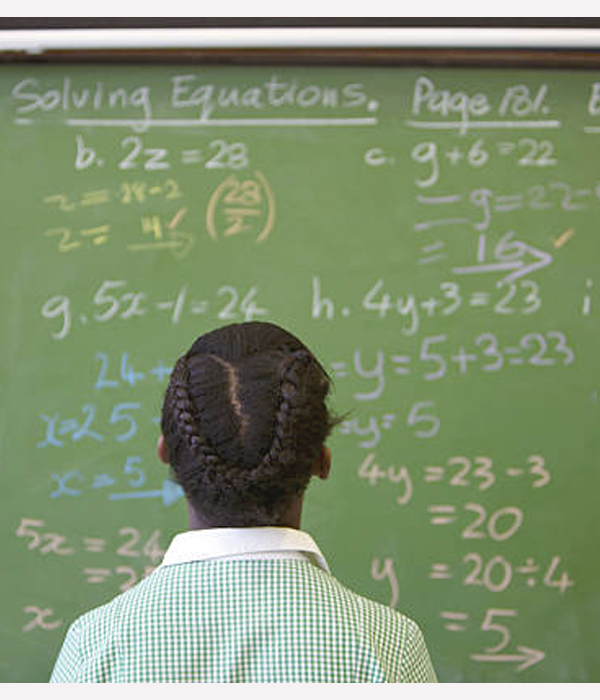 Solving Equations. Page 131.
b. 2z = 28
z = 28-2 (28/2)
z = 14
c. g+6 = 22
g = 22-
= 16
g. 5x - 1 = 24
24 +
x = 25
x = 5
5x = 24
= 2
x
h. 4y + 3 = 23
= y = 5+3=23
y = 5
4y = 23 - 3
= 20
y = 20 ÷ 4
= 5
i